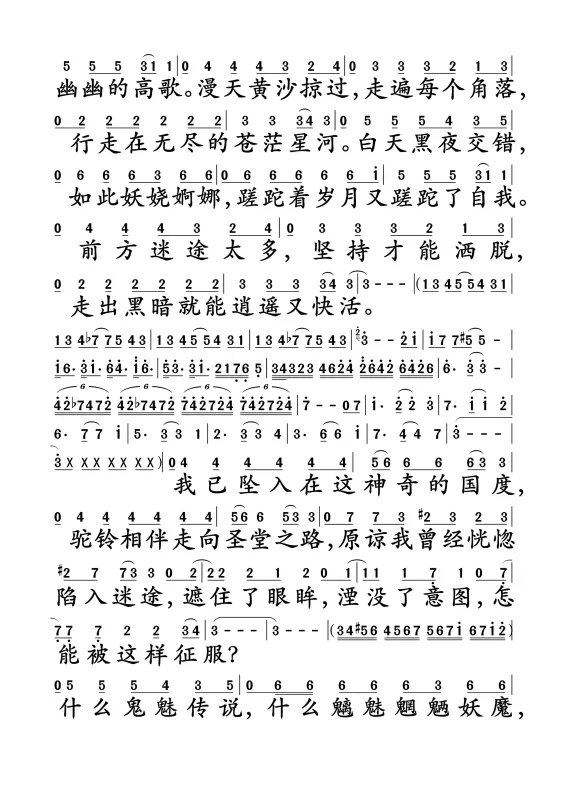 5 5 5 31 1 | 0 4 4 4 3 2 4 | 0 3 3 3 2 1 3 |
幽幽的高歌。漫天黄沙掠过，走遍每个角落，
0 2 2 2 2 2 2 | 3 3 34 3 | 0 5 5 5 4 3 5 |
行走在无尽的苍茫星河。白天黑夜交错，
0 6 6 6 3 6 6 | 0 6 6 6 6 6 i | 5 5 5 31 1 |
如此妖娆婀娜，蹉跎着岁月又蹉跎了自我。
0 4 4 4 3 2 4 | 0 3 3 3 2 1 3 |
前方迷途太多，坚持才能洒脱，
0 2 2 2 2 2 2 | 3 3 3 34 3 | 3 - - - | (13 45 54 31 |
走出黑暗就能逍遥又快活。
13 4♭7 75 43 | 13 45 54 31 | 13 4♭7 75 43 | 3 - 2i | i7 7♯5 5 - |
i6· 3i· 64· i6· | 53· 3i· 2176 5 |
6· 3 3 - |
7 - - 07 | i· 2 2 3 | 7· i i 2 |
6· 7 7 i | 5· 3 3 1 | 2· 3 3 4 | 3· 6 6 i | 7· 4 4 7 | 3 - - - |
3 X X X X X X X) | 0 4 4 4 4 4 4 | 56 6 6 63 3 |
我已坠入在这神奇的国度，
0 4 4 4 4 4 4 | 56 6 53 3 | 0 7 7 3 ♯2 3 2 3 |
驼铃相伴走向圣堂之路，原谅我曾经恍惚
♯2 7 73 3 0 2 | 22 2 1 2 0 1 | 11 1 7 1 0 7 |
陷入迷途，遮住了眼眸，湮没了意图，怎
77 7 2 2 34 | 3 - - - | 3 - - - | (34♯56 4567 567i 67i2) |
能被这样征服？
0 5 5 5 4 3 5 | 0 6 6 6 6 6 3 6 6 |
什么鬼魅传说，什么魑魅魍魉妖魔，